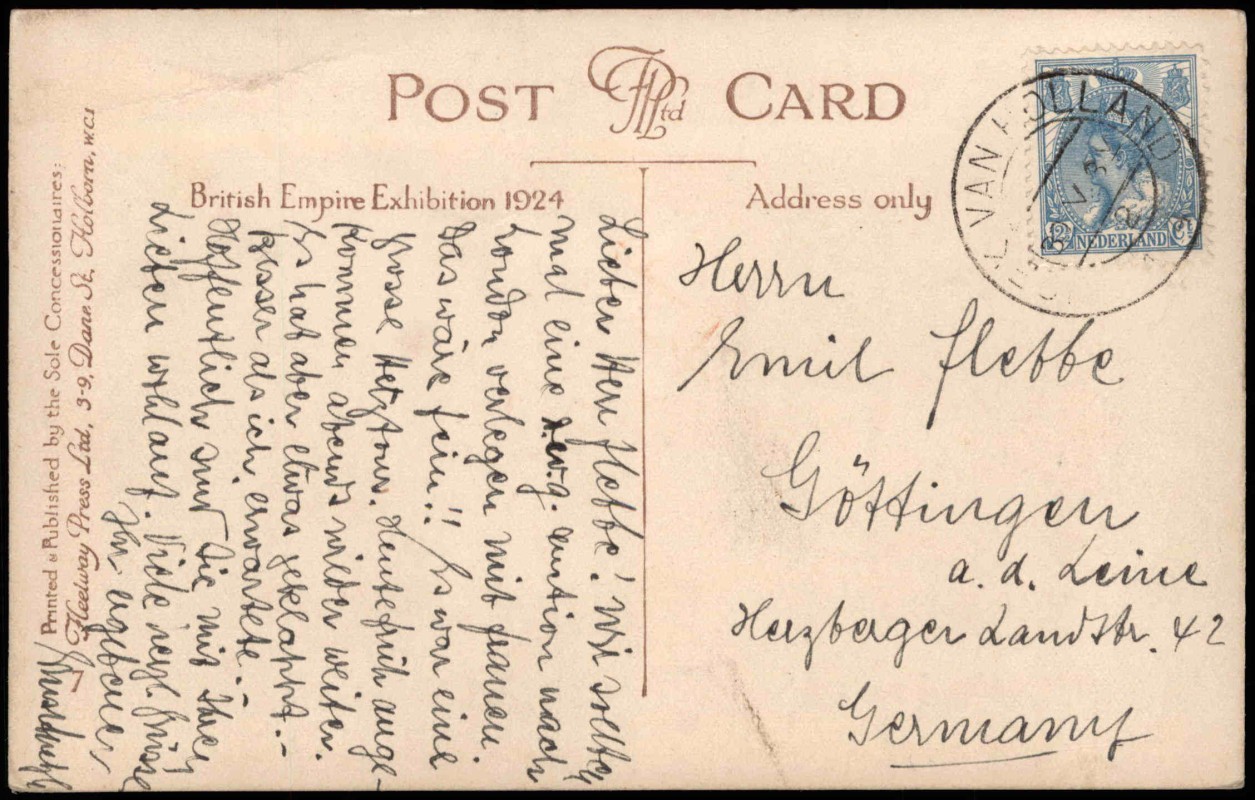 POST CARD
British Empire Exhibition 1924
Address only
Printed & Published by the Sole Concessionaires:
Fleetway Press Ltd, 3-9, Dane St. Holborn, W.C.1
VAN HOLLAND
12½ NEDERLAND Ct
Herrn
Emil Flebbe
Göttingen
a. d. Leine
Herzberger Landstr. 42
Germany
Lieber Herr Flebbe! Wir sollten
mal eine auction nach
London verlegen mit Frauen.
Das wäre fein!! Es war eine
grosse Hetztour. Heute früh ange-
kommen abends wieder weiter.
Es hat aber etwas geklappt.-
besser als ich erwartete.-
Hoffentlich sind Sie mit Ihren
Lieben wohlauf. Viele Grüsse
Ihr ergebener